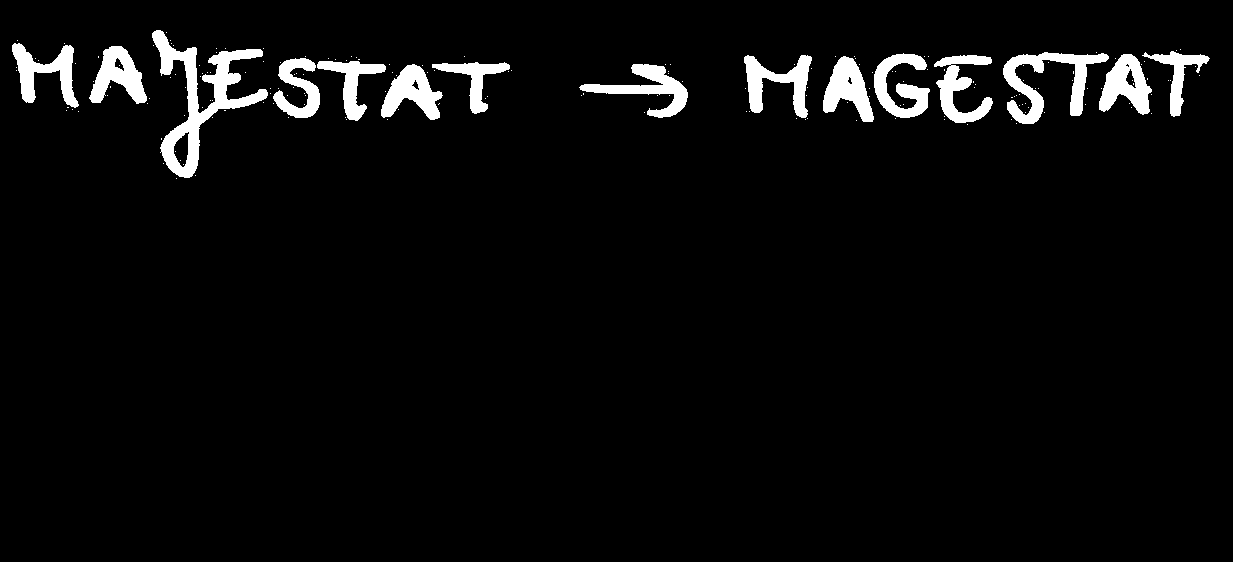 MAJESTAT → MAGESTAT